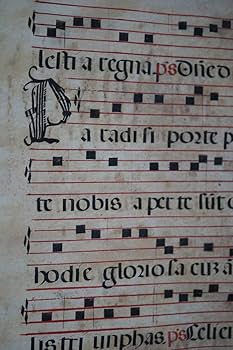 lesti a regna. ps Dñe d
P
a radi si porte p
te nobis a per te sūt o
hodie glorio sa cuȝ á
lis tri unphas. ps Celici